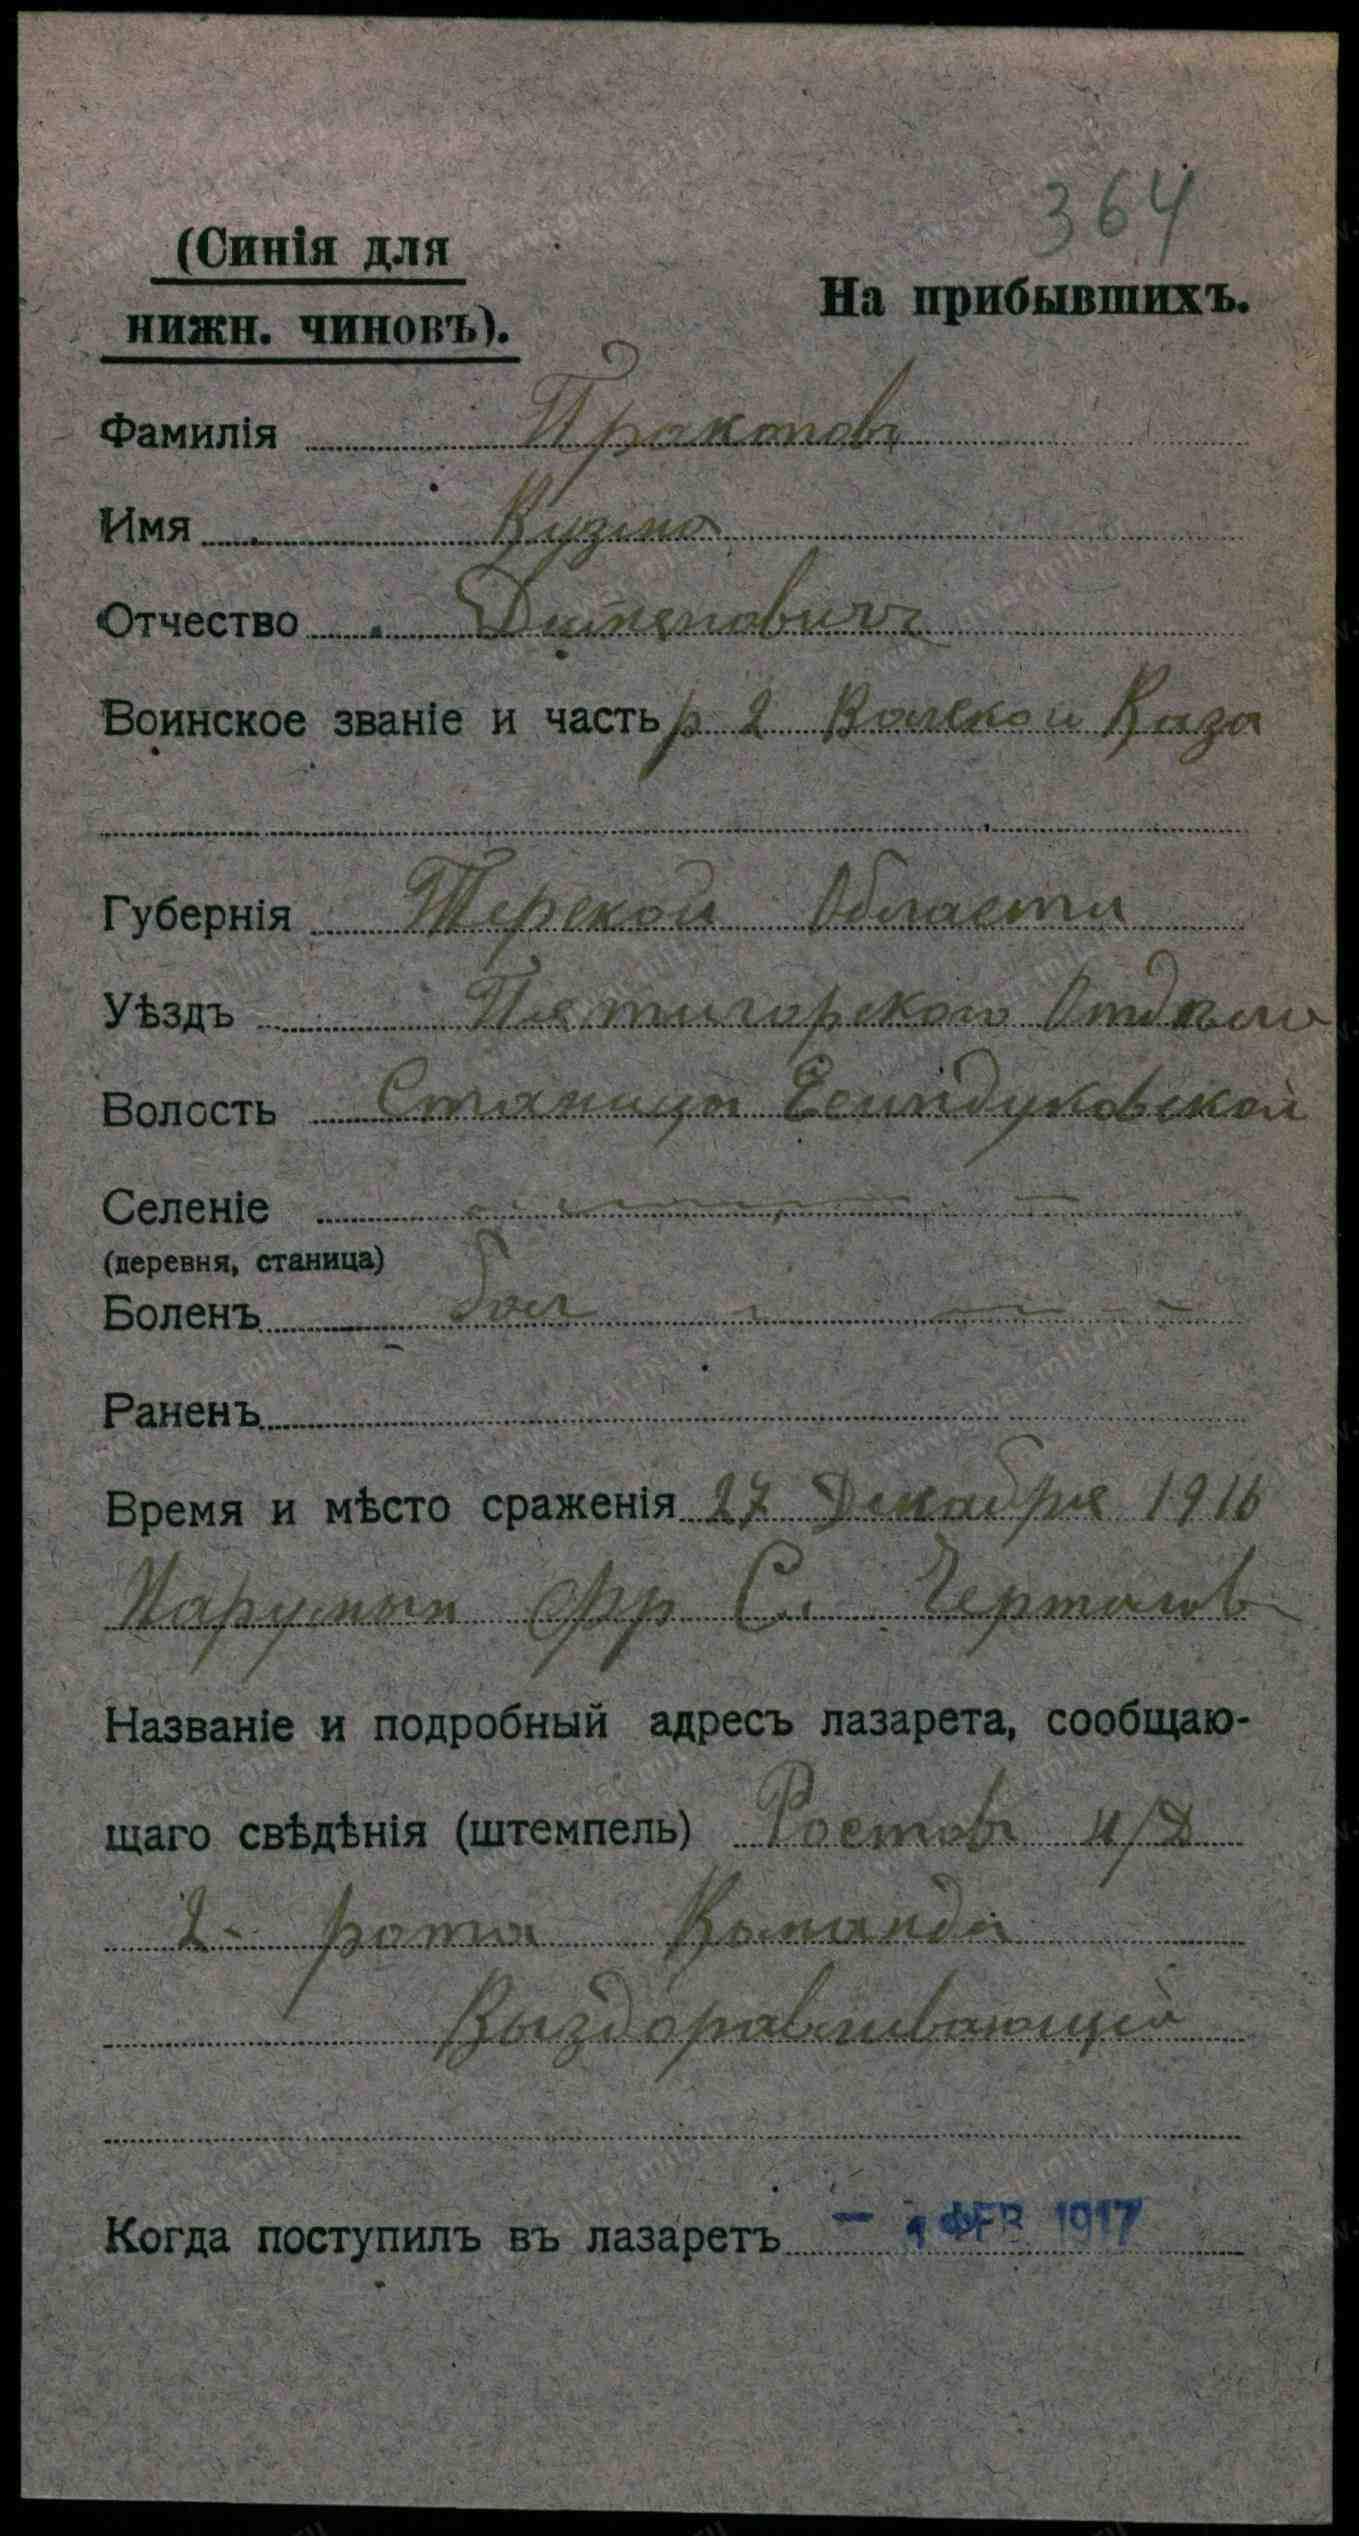 364
(Синія для
нижн. чиновъ).
На прибывшихъ.
Фамилія Практовъ
Имя Кузма
Отчество
Воинское званіе и часть р 2 Каза
Губернія Терской Области
Уѣздъ Пятигорского Отдѣла
Волость Станицы Есиндуковской
Селеніе
(деревня, станица)
Боленъ бол
Раненъ
Время и мѣсто сраженія 27 Декабря 1916
Нарумын фр С.
Названіе и подробный адресъ лазарета, сообщаю-
щаго свѣдѣнія (штемпель) Ростовъ н/Д
2- рота Команда
Выздоравливающій
Когда поступилъ въ лазаретъ - 1 ФЕВ 1917